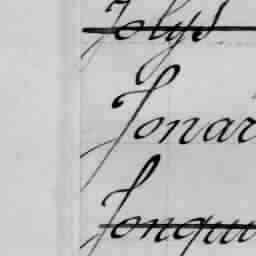 Jolys
Jonar
Jonqui